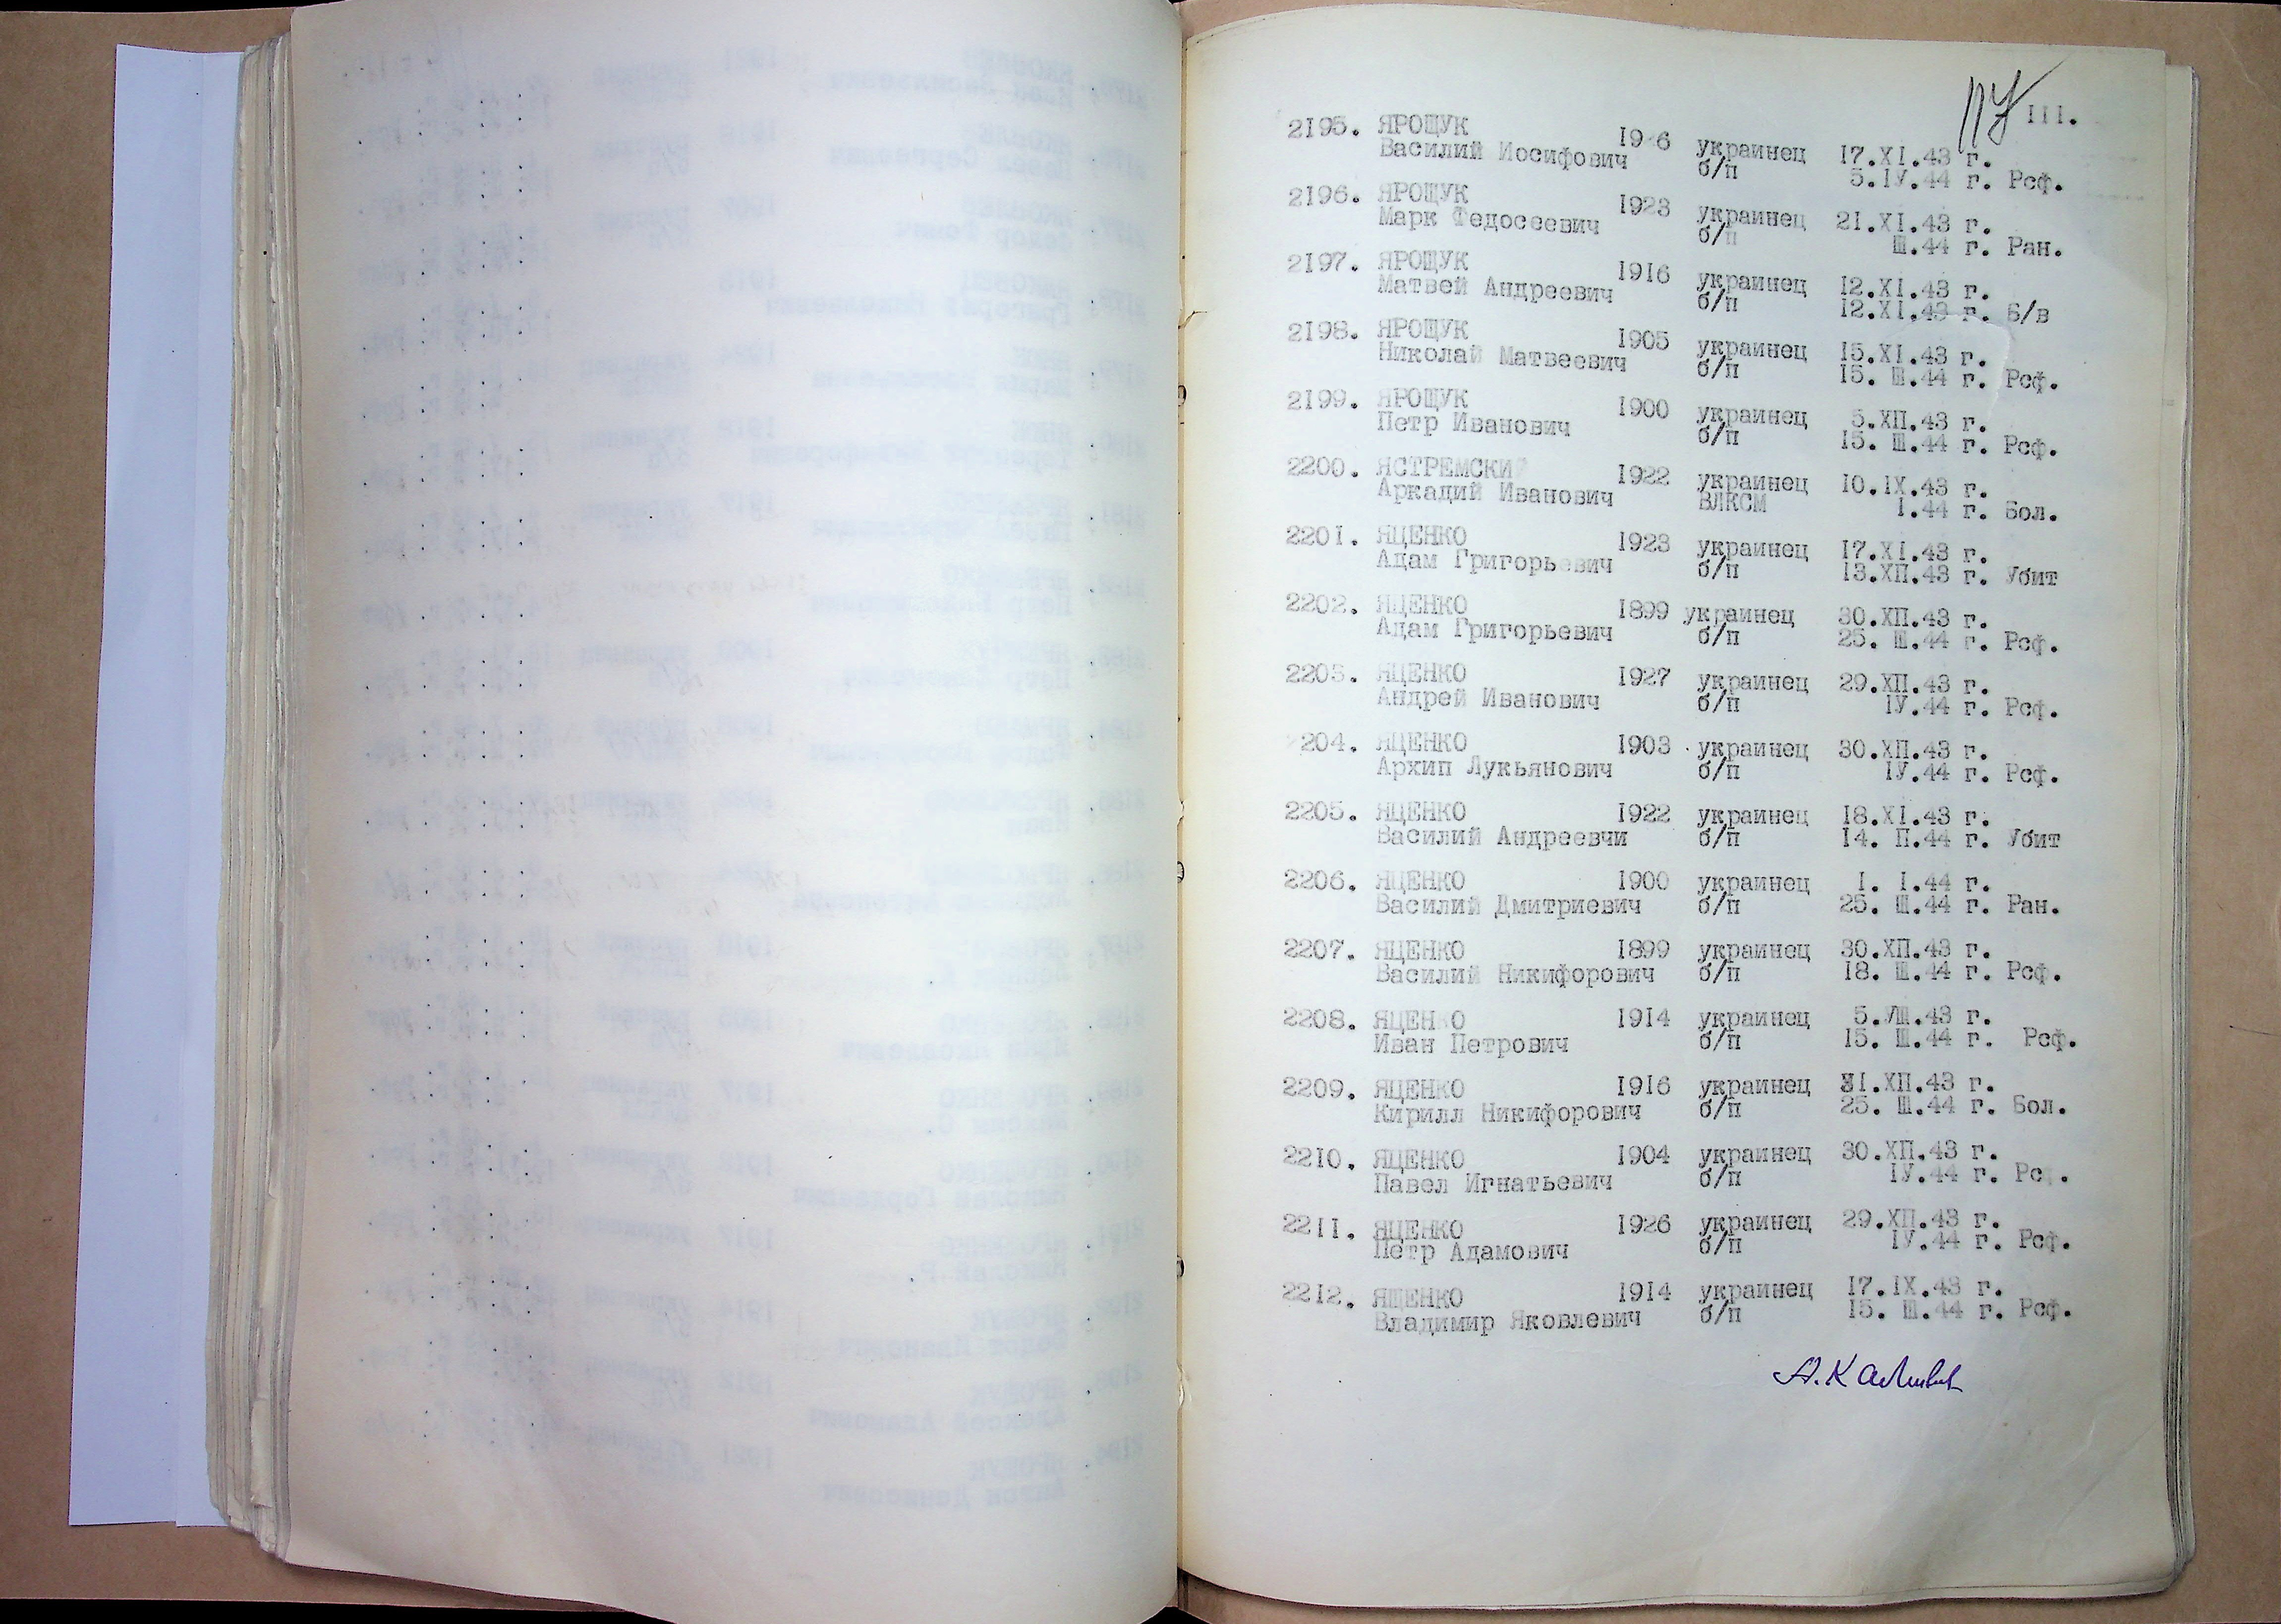 III.
2195. ЯРОЩУК 19 6 украинец 17.XI.43 г.
Василий Иосифович б/п 5.IУ.44 г. Рсф.
2196. ЯРОЩУК 1923 украинец 21.XI.43 г.
Марк Федосеевич б/п Ш.44 г. Ран.
2197. ЯРОЩУК 1916 украинец 12.XI.43 г.
Матвей Андреевич б/п 12.XI.43 г. Б/в
2198. ЯРОЩУК 1905 украинец 15.XI.43 г.
Николай Матвеевич б/п 15. Ш.44 г. Рсф.
2199. ЯРОЩУК 1900 украинец 5.ХП.43 г.
Петр Иванович б/п 15. Ш.44 г. Рсф.
2200. ЯСТРЕМСКИЙ 1922 украинец 10.IX.43 г.
Аркадий Иванович ВЛКСМ I.44 г. Бол.
2201. ЯЦЕНКО 1923 украинец 17.XI.43 г.
Адам Григорьевич б/п 13.ХП.43 г. Убит
2202. ЯЦЕНКО 1899 украинец 30.ХП.43 г.
Адам Григорьевич б/п 25. Ш.44 г. Рсф.
2203. ЯЦЕНКО 1927 украинец 29.ХП.43 г.
Андрей Иванович б/п IУ.44 г. Рсф.
204. ЯЦЕНКО 1903 украинец 30.ХП.43 г.
Архип Лукьянович б/п IУ.44 г. Рсф.
2205. ЯЦЕНКО 1922 украинец 18.XI.43 г.
Василий Андреевчи б/п 14. П.44 г. Убит
2206. ЯЦЕНКО 1900 украинец I. I.44 г.
Василий Дмитриевич б/п 25. Ш.44 г. Ран.
2207. ЯЦЕНКО 1899 украинец 30.ХП.43 г.
Василий Никифорович б/п 18. Ш.44 г. Рсф.
2208. ЯЦЕНКО 1914 украинец 5.УШ.43 г.
Иван Петрович б/п 15. Ш.44 г. Рсф.
2209. ЯЦЕНКО 1916 украинец 31.ХП.43 г.
Кирилл Никифорович б/п 25. Ш.44 г. Бол.
2210. ЯЦЕНКО 1904 украинец 30.ХП.43 г.
Павел Игнатьевич б/п IУ.44 г. Рсф.
2211. ЯЦЕНКО 1926 украинец 29.ХП.43 г.
Петр Адамович б/п IУ.44 г. Рсф.
2212. ЯЩЕНКО 1914 украинец 17.IX.43 г.
Владимир Яковлевич б/п 15. Ш.44 г. Рсф.